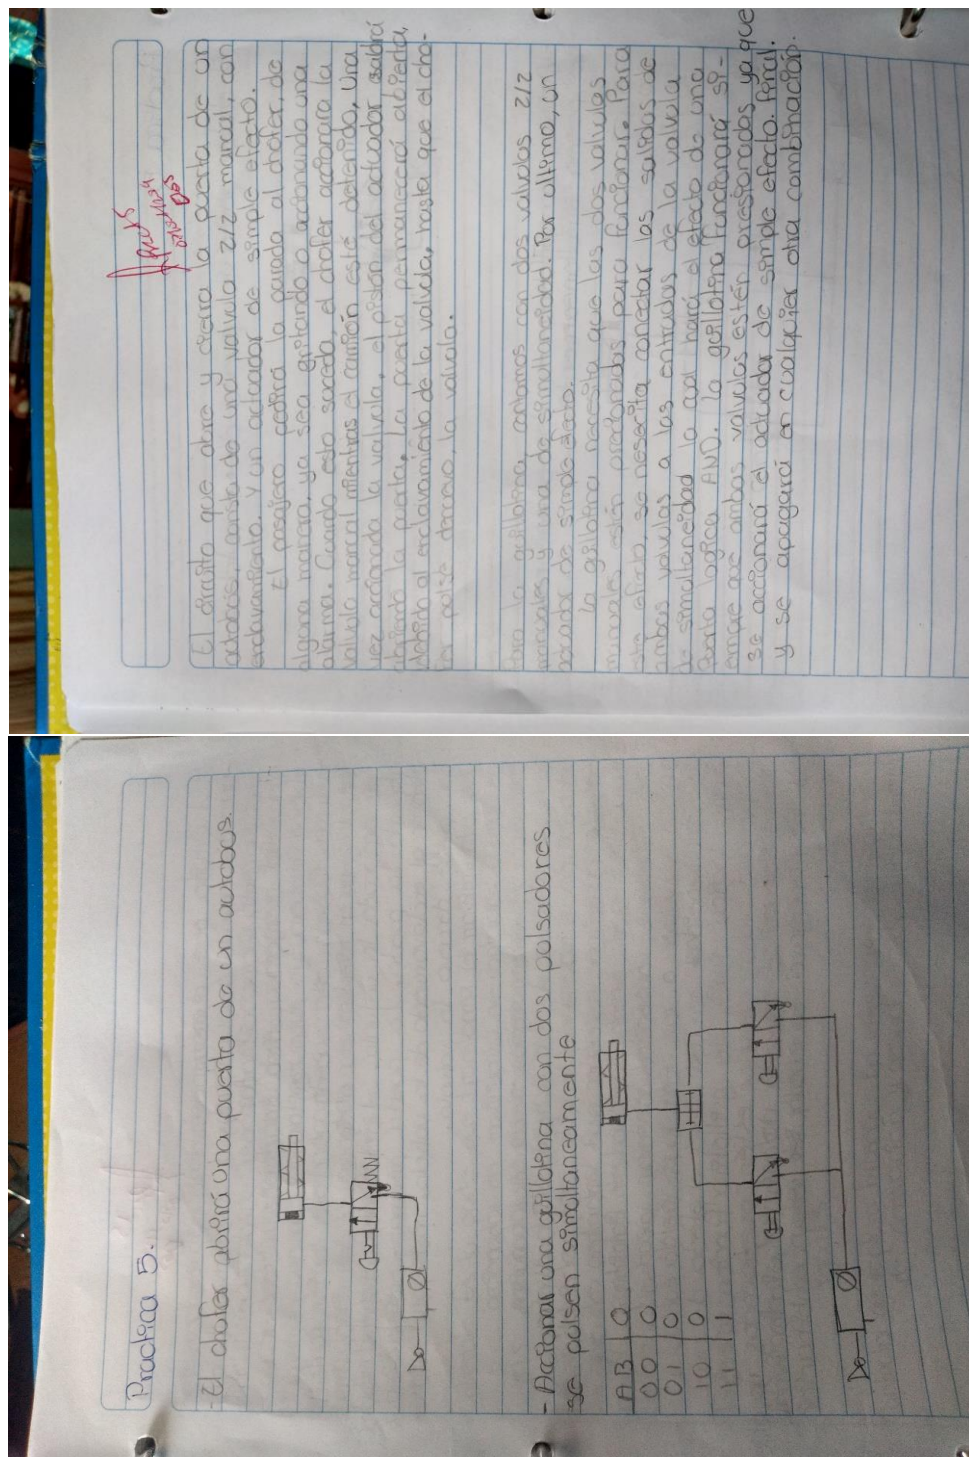 Practica 5.
- El chofer abrirá una puerta de un autobus.
- Accionar una guillotina con dos pulsadores
se pulsen simultaneamente
AB | O
00 | 0
01 | 0
10 | 0
11 | 1
El circuito que abre y cierra la puerta de un
autobus, consta de una valvula 2/2 manual, con
enclavamiento y un actuador de simple efecto.
El pasajero pedirá la parada al chofer, de
alguna manera, ya sea gritando o accionando una
alarma. Cuando esto suceda, el chofer accionara la
valvula manual mientras el camión este detenido, una
vez accionada la valvula, el piston del actuador
abriendo la puerta, la puerta permanecerá abierta,
debido al enclavamiento de la valvula, hasta que el cho-
fer pulse denuevo, la valvula.
Para la guillotina, contamos con dos valvulas 2/2
manuales y una de simultaneidad. Por ultimo, un
actuador de simple efecto.
La guillotina necesita que las dos valvulas
manuales estén presionadas para funcionar. Para
este efecto, se necesita conectar las salidas de
ambas valvulas a las entradas de la valvula
de simultaneidad la cual hará el efecto de una
puerta logica AND. La guillotina funcionará si-
empre que ambas valvulas estén presionadas ya que
se accionará el actuador de simple efecto. Final.
y se apagará en cualquier otra combinación.